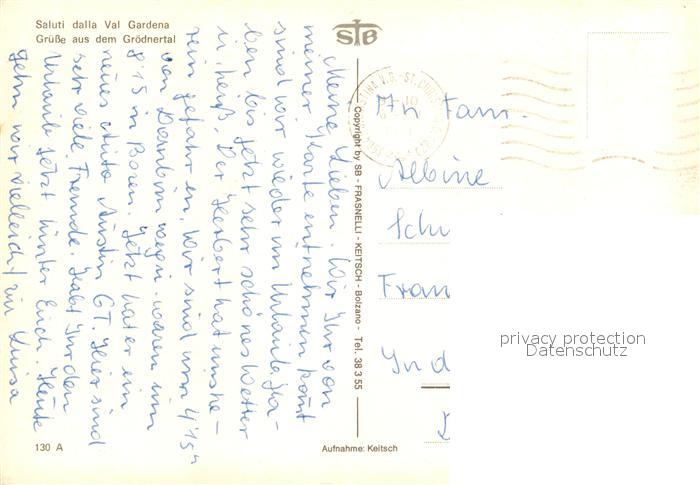 Saluti dalla Val Gardena
Grüße aus dem Grödnertal
STB
Meine Lieben. Wie Ihr von
meiner Karte entnehmen könnt
sind wir wieder im Urlaub. Ha-
ben bis jetzt sehr schönes Wetter
u. heiß. Der Herbert hat uns he-
rein gefahren, wir sind um 4'15 h
von weg u. waren um
8'15 in Bozen. Jetzt hat er ein
neues Auto Austin GT. Hier sind
sehr viele Fremde. Habt Ihr den
Urlaub jetzt hinter Euch. Heute
gehn wir vielleicht zur
Copyright by SB - FRASNELLI - KEITSCH - Bolzano - Tel. 38 3 55
An Fam.
Albine
Schu
Fran
Ind
privacy protection
Datenschutz
130 A
Aufnahme: Keitsch